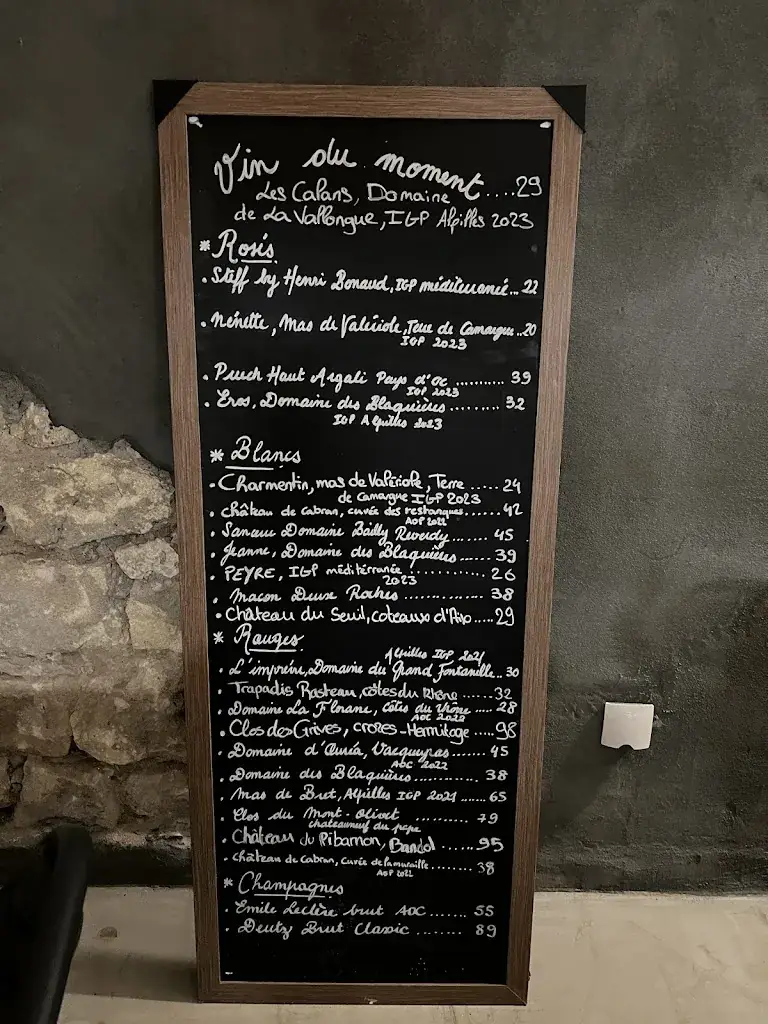 Vin du moment ....29
Les Calans, Domaine
de La Vallongue, IGP Alpilles 2023
* Rosés
. Stiff by Henri Bonaud, IGP méditerranée...22
. Nénette, Mas de Valériole, Terre de Camargue...20
IGP 2023
. Puech Haut Argali Pays d'oc ..........39
IGP 2023
. Eros, Domaine des Blaquières.........32
IGP Alpilles 2023
* Blancs
. Charmentin, mas de Valériole, Terre .....24
de Camargue IGP 2023
. château de cabran, cuvée des restanques......42
AOP 2022
. Domaine Bailly Reverdy...... 45
. Jeanne, Domaine des Blaquières..... 39
. PEYRE, IGP méditérranée ........... 26
2023
. Macon Deux Roches .............. 38
. Château du Seuil, coteaux d'Aix.....29
* Rouges
Alpilles IGP 2021
. Domaine du Grand Fontanille..30
. Trapadis Rasteau, côtes du Rhône ......32
. Domaine La côtes du Rhône ..... 28
AOC 2022
. Clos des Grives, crozes-Hermitage .....98
. Domaine d'Ouréa, Vacqueyras...... 45
AOC 2022
. Domaine des Blaquières............. 38
. Mas de Bret, Alpilles IGP 2021.......65
. Clos du Mont-Olivet ............ 79
chateauneuf du pape
. Château du Pibarnon, Bandol ......95
. château de Cabran, Cuvée de la muraille........ 38
AOP 2022
* Champagnes
. Emile Leclère brut AOC ....... 55
. Deutz Brut Classic ........ 89